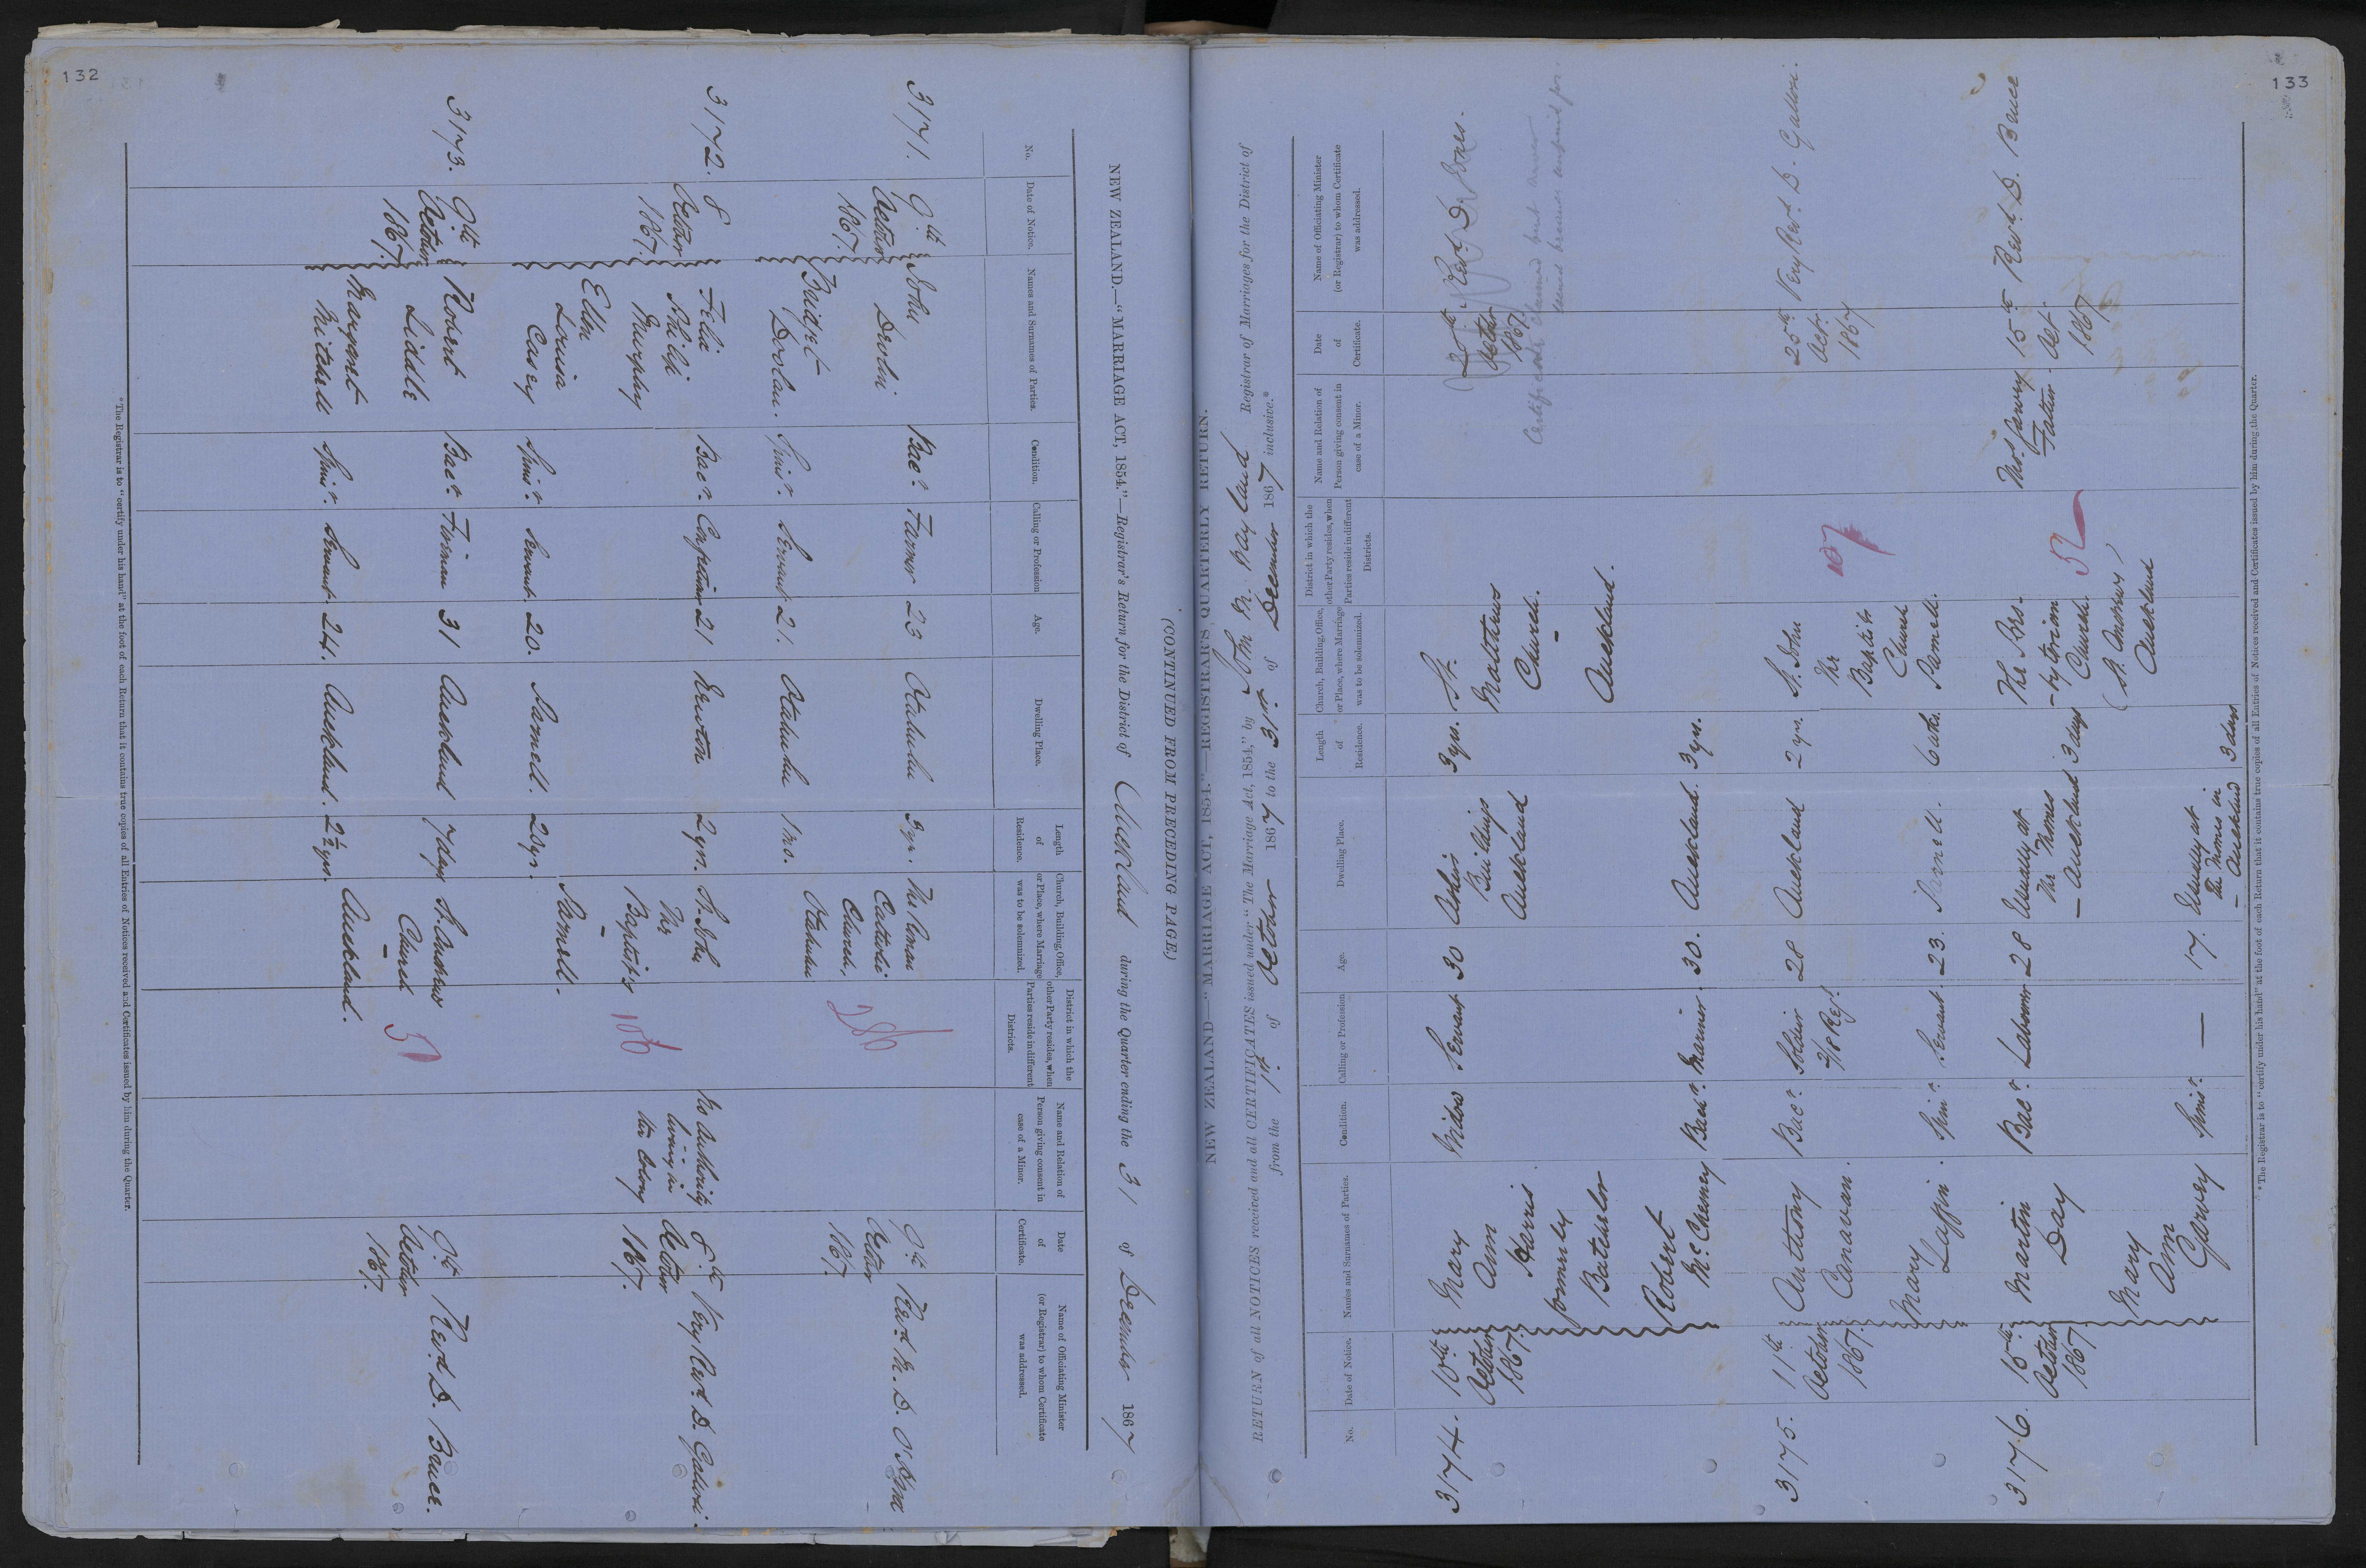 132
NEW ZEALAND.—"MARRIAGE ACT, 1854."—Registrar's Return for the District of Auckland during the Quarter ending the 31 of December 1867
No.
Date of Notice.
Names and Surnames of Parties.
Condition.
Calling or Profession
Age.
Dwelling Place.
Length of Residence.
Church, Building, Office, or Place, where Marriage was to be solemnized.
District in which the other Party resides, when Parties reside in different Districts.
Name and Relation of Person giving consent in case of a Minor.
Date of Certificate.
Name of Officiating Minister (or Registrar) to whom Certificate was addressed.
3171. 9th John Bacr. Farmer 23 Otahuhu 3 yrs. The Roman 9th Revd.
October Devlin Catholic October
1867. Church, 1867.
Bridget Spinr. Servant 21. Otahuhu 1 mo. Otahuhu
Doolan.
286
3172. 8 Felix Bacr. 21 Newton 2 yrs. St. John No authority 8th Very Revd. D.
October Philip The living in October
1867. Murphy Baptist's the Colony 1867.
Ellen Spinr. Servant 20. Parnell. 20 yrs. Parnell.
Louisa
Casey
106
3173. 9th Robert Bacr. Fireman 31 Auckland 7 days St. Andrews 9th Revd. D. Bruce.
October Liddle Church October
1867. 1867.
Margaret Spinr. Servant. 24. Auckland. 2½ yrs. Auckland.
Mitchell
* The Registrar is to "certify under his hand" at the foot of each Return that it contains true copies of all Entries of Notices received and Certificates issued by him during the Quarter.
(CONTINUED FROM PRECEDING PAGE.)
133
NEW ZEALAND—"MARRIAGE ACT, 1854."—REGISTRAR'S QUARTERLY RETURN.
RETURN of all NOTICES received and all CERTIFICATES issued under "The Marriage Act, 1854," by John M. Wayland Registrar of Marriages for the District of
from the 1st of October 1867 to the 31st of December 1867 inclusive.*
No.
Date of Notice.
Names and Surnames of Parties.
Condition.
Calling or Profession
Age.
Dwelling Place.
Length of Residence.
Church, Building, Office, or Place, where Marriage was to be solemnized.
District in which the other Party resides, when Parties reside in different Districts.
Name and Relation of Person giving consent in case of a Minor.
Date of Certificate.
Name of Officiating Minister (or Registrar) to whom Certificate was addressed.
3174. 10th Mary Widow Servant 30 3 yrs. St. Revd. D.
October Ann Buildings Matthews October
1867. Harris Auckland Church. 1867.
formerly
Batchelor Auckland.
Robert Bachr. Mariner. 30. Auckland. 3 yrs.
3175. 11th Anthony Bacr. Soldier 28 Auckland 2 yrs. St. John 25th Very Revd. D.
October Canavan. 2/18 Regt. The Octr.
1867. Baptists 1867
Mary Spinr. Servant. 23. Parnell. Church
Laffin. Parnell.
107
3176. 15th Martin Bacr. Labourer 28 Usually at 3 days The Pres- Thos. Garvey 15th Revd. D. Bruce
October Day the Thames -byterian Father. Oct.
1867. — Auckland Church. 1867
(St. Andrews)
Auckland
Mary Spinr. — 17. Usually at 3 days
Ann the Thames in
Garvey — Auckland
52
* The Registrar is to "certify under his hand" at the foot of each Return that it contains true copies of all Entries of Notices received and Certificates issued by him during the Quarter.